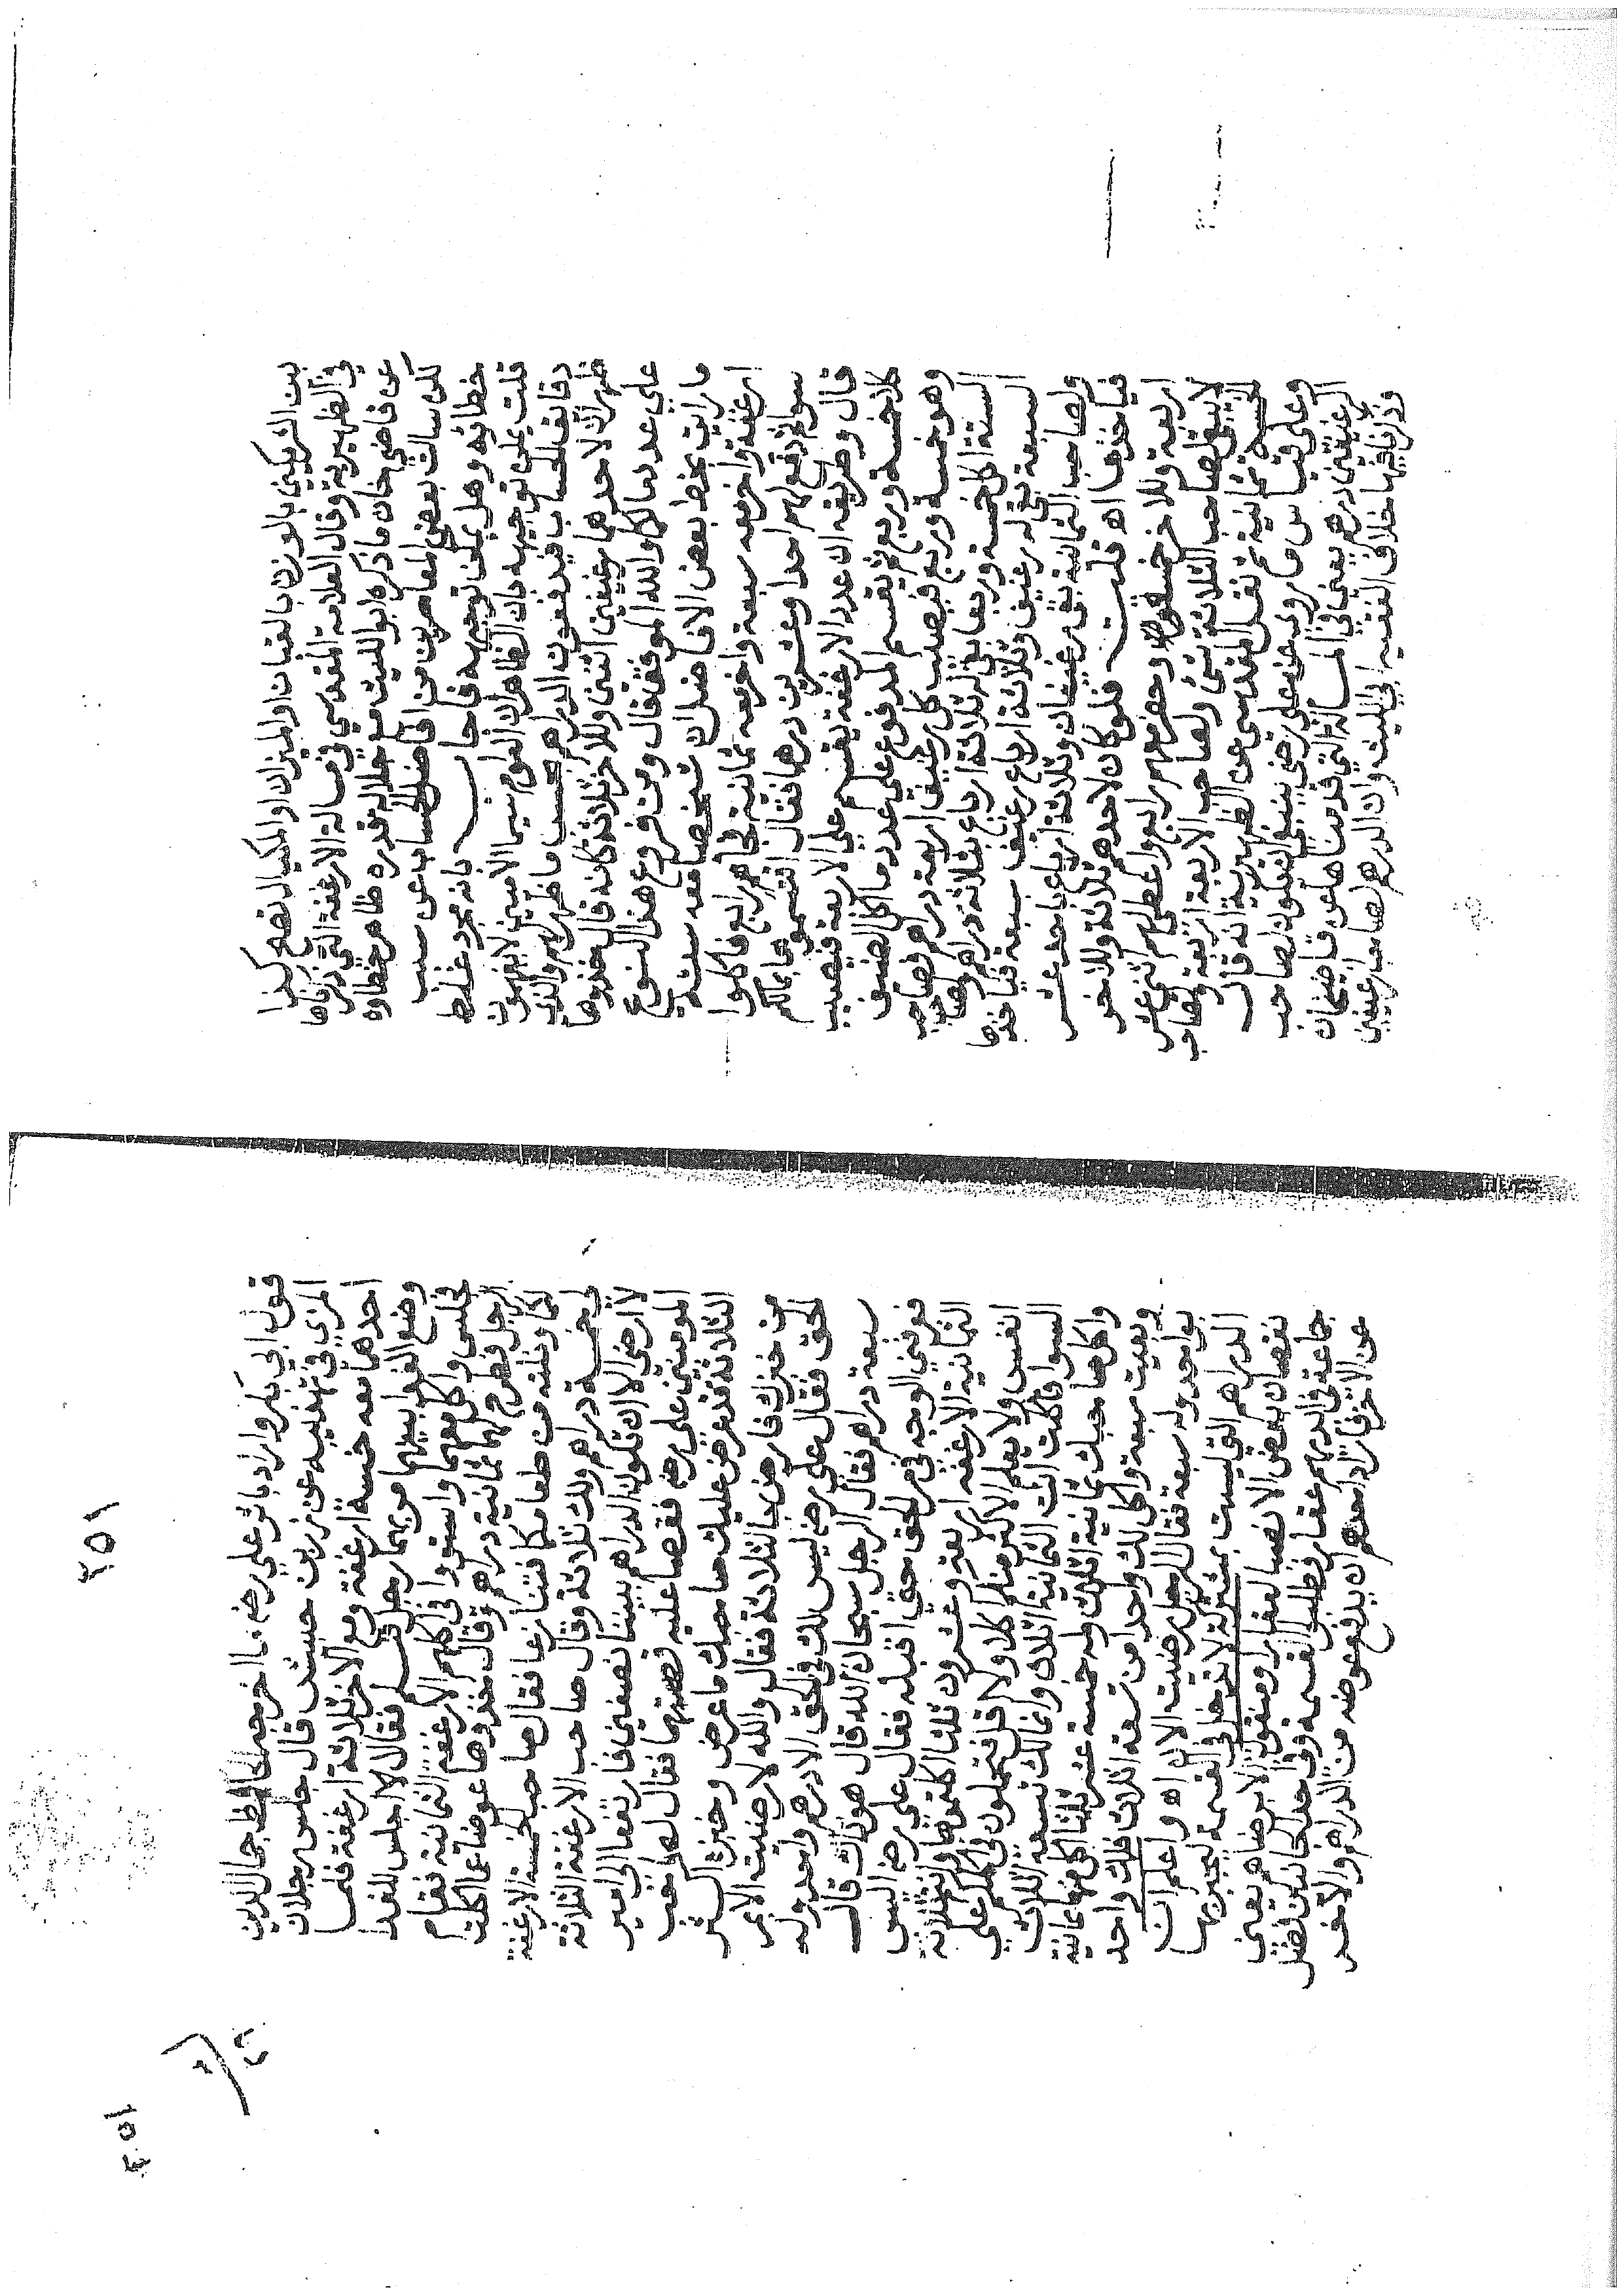 بين الشريكين بالوزن بالقبان او الميزان او المكيال نصح كذا
في الظهيرية وقال العلامة المقدسي في مسالة الارغفة التي ذكرها
عن قاضي خان ما ذكره ابو الليث مع جلالة قدره ظاهر خطاؤه
لكن سالت بعض المعاصرين من افاضل الحساب عن سبب
خطائه وهل يمكن توجيهه فاجاب بانه مجرد غلط
قلت يمكن توجيهه بان الظاهر ان القوم سيما الاميين لا يفهمون
دقائق الحساب فيدفعون الدراهم بحسب ما ظهر لهم والذي
ظهر ان لاحدهما رغيفين اثنين وللاخر ثلاثة كانه قال خذوها
على عدد مالكما والله الموفق قال ومن فروع هذا النوع
ما رايت بخط بعض الافاضل ان شخصا معه ستة
ارغفة واخر معه سبعة واخر معه ثمانية فجاهم رابع فاكلوا
سواء ثم دفع لهم احدا وعشرين درهما فقال اقتسموها بمالكم
قال وطريقه ان عدد الارغفة يقسم على الاربعة فنصيب
كل خمسة وربع ثم يقسم المدفوع على عدد ما اكل الضيف
وهو خمسة وربع فيصيب كل رغيف اربعة دراهم فصاحب
الستة اكل خمسة وربعا بقي له ثلاثة ارباع بثلاثة دراهم وصاحب
السبعة بقي له رغيف وثلاثة ارباع رغيف سبعة فياخذها
ولصاحب الثمانية بقي رغيفان وثلاثة ارباع باحد عشر
فياخذها اه قلت فلو كان لاحدهم ثلاثة وللاخر
اربعة وللاخر خمسة وحضر معهم رابع واعطاهم اثني عشر
لا يبقى لصاحب الثلاثة شئ ولصاحب الاربعة اربعة ولصاحب
الخمسة ثمانية ثم نقل المقدسي عن الظهيرية انه قال
وعلى قياس ما روي عن علي رضي ينبغي ان يكون لصاحب
الرغيفين درهم يعني في المسالة التي قدمناها عن قاضيخان
وذكر فيها خلاف الفقيه ابي الليث وان الدرهم لصاحب الرغيفين
٣٥١
قول ابي بكر واراد باثر علي رضه ما اخرجه الحافظ جمال الدين
المزي في تهذيبه عن زر بن حبيش قال جلس رجلان
احدهما معه خمسة ارغفة ومع الاخر ثلاثة ارغفة فلما
وضع الغدا بينهما مر بهما رجل فسلم فقالا اجلس للغدا
فجلس واكل معهما واستووا في اكلهم الارغفة الثمانية فقام
الرجل فطرح لهما ثمانية دراهم وقال خذوها عوضا عما اكلت
لكما ونلته من طعامكما فتنازعا فقال صاحب الخمسة الارغفة
لي خمسة دراهم ولك ثلاثة وقال صاحب الارغفة الثلاثة
لا ارضى الا ان تكون الدراهم بيننا نصفين فارتفعا الى امير
المومنين علي رضه فقصا عليه قصتهما فقال لصاحب
الثلاثة قد عرض عليك صاحبك ما عرض وخبزه اكثر
من خبزك فارض بالثلاثة فقال والله لا رضيت الا بمر
الحق فقال علي رضه ليس لك في الحق الا درهم واحد وله
سبعة دراهم فقال الرجل سبحان الله قال هو ذاك قال
فعرفني الوجه في مر الحق حتى اقبله فقال علي رضه اليس
الثمانية الارغفة اربعة وعشرون ثلثا اكلتموها وانتم ثلاثة
انفس ولا يعلم الاكثر منكم اكلا ولا الاقل فتحملون في اكلكم على
السوا فاكلت انت ثمانية اثلاث وانما لك تسعة اثلاث
واكل صاحبك ثمانية اثلاث وله خمسة عشر ثلثا اكل منها ثمانية
وبقيت سبعة واكل لك واحدا من تسعة اثلاث فلك واحد
بواحد وله سبعة فقال الرجل رضيت الان اه واعلم ان
الدراهم التي ليست بمشتركة لا تدخل في القسمة ليجبر بها
نقصان بعض الانصبا لعقار او منقول الا برضاهم يعني
جماعة في ايديهم عقار فطلبوا القسمه وفي احد الجانبين فضل
عن الاخر فاراد احدهم ان يدفع عوضه من الدراهم والآخر
٣٥١